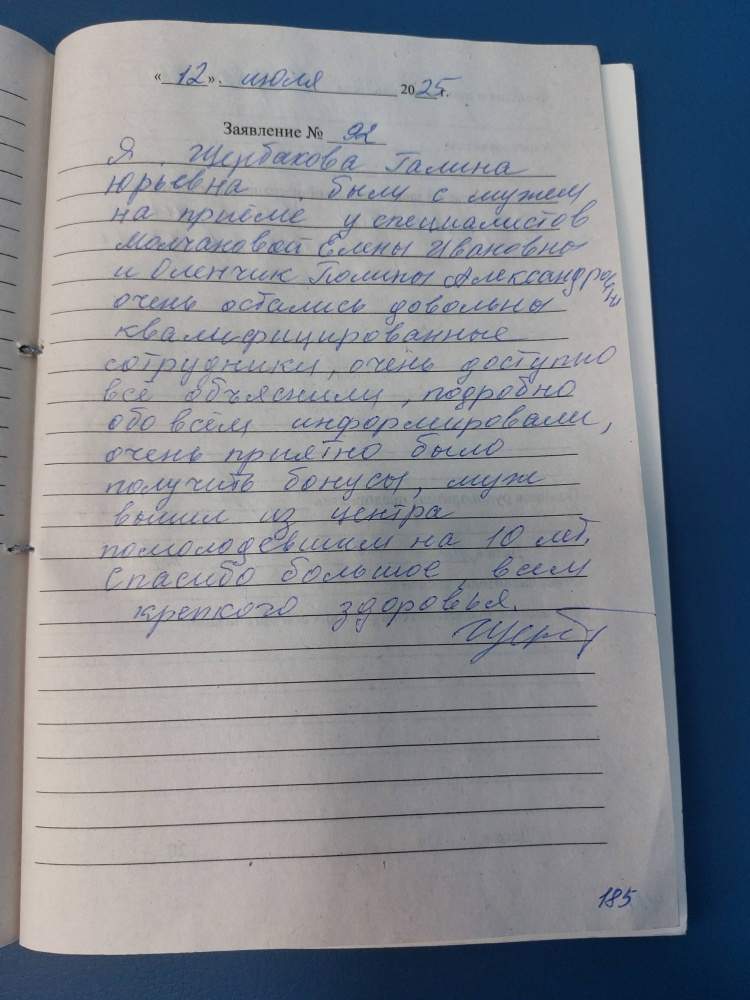 « 12 » июля 2025 г.
Заявление № 92
Я Щербакова Галина
Юрьевна были с мужем
на приёме у специалистов
Молчановой Елены Ивановны
и Оленчик Полины Александровны
очень остались довольны
квалифицированные
сотрудники, очень доступно
всё объяснили, подробно
обо всём информировали,
очень приятно было
получить бонусы, муж
вышел из центра
помолодевшим на 10 лет.
Спасибо большое, всем
крепкого здоровья.
185